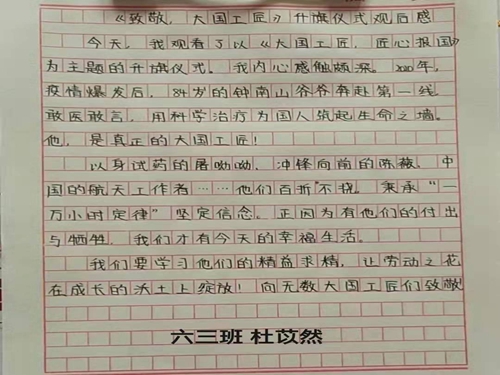 《致敬，大国工匠》升旗仪式观后感
今天，我观看了以《大国工匠，匠心报国》
为主题的升旗仪式。我内心感触颇深。2020年，
疫情爆发后，84岁的钟南山爷爷奔赴第一线。
敢医敢言，用科学治疗为国人筑起生命之墙。
他，是真正的大国工匠！
以身试药的屠呦呦，冲锋向前的陈薇，中
国的航天工作者……他们百折不挠。秉承“一
万小时定律”坚定信念。正因为有他们的付出
与牺牲，我们才有今天的幸福生活。
我们要学习他们的精益求精，让劳动之花
在成长的沃土上绽放！向无数大国工匠们致敬！
六三班 杜苡然